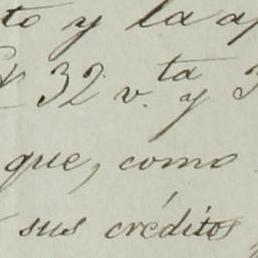 to y la
32 v.ta y 3
que, como
sus créditos